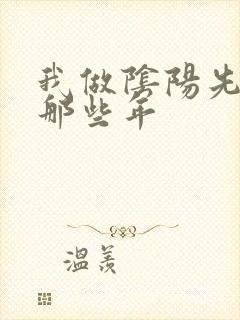 我做陰陽先
那些年
溫羨